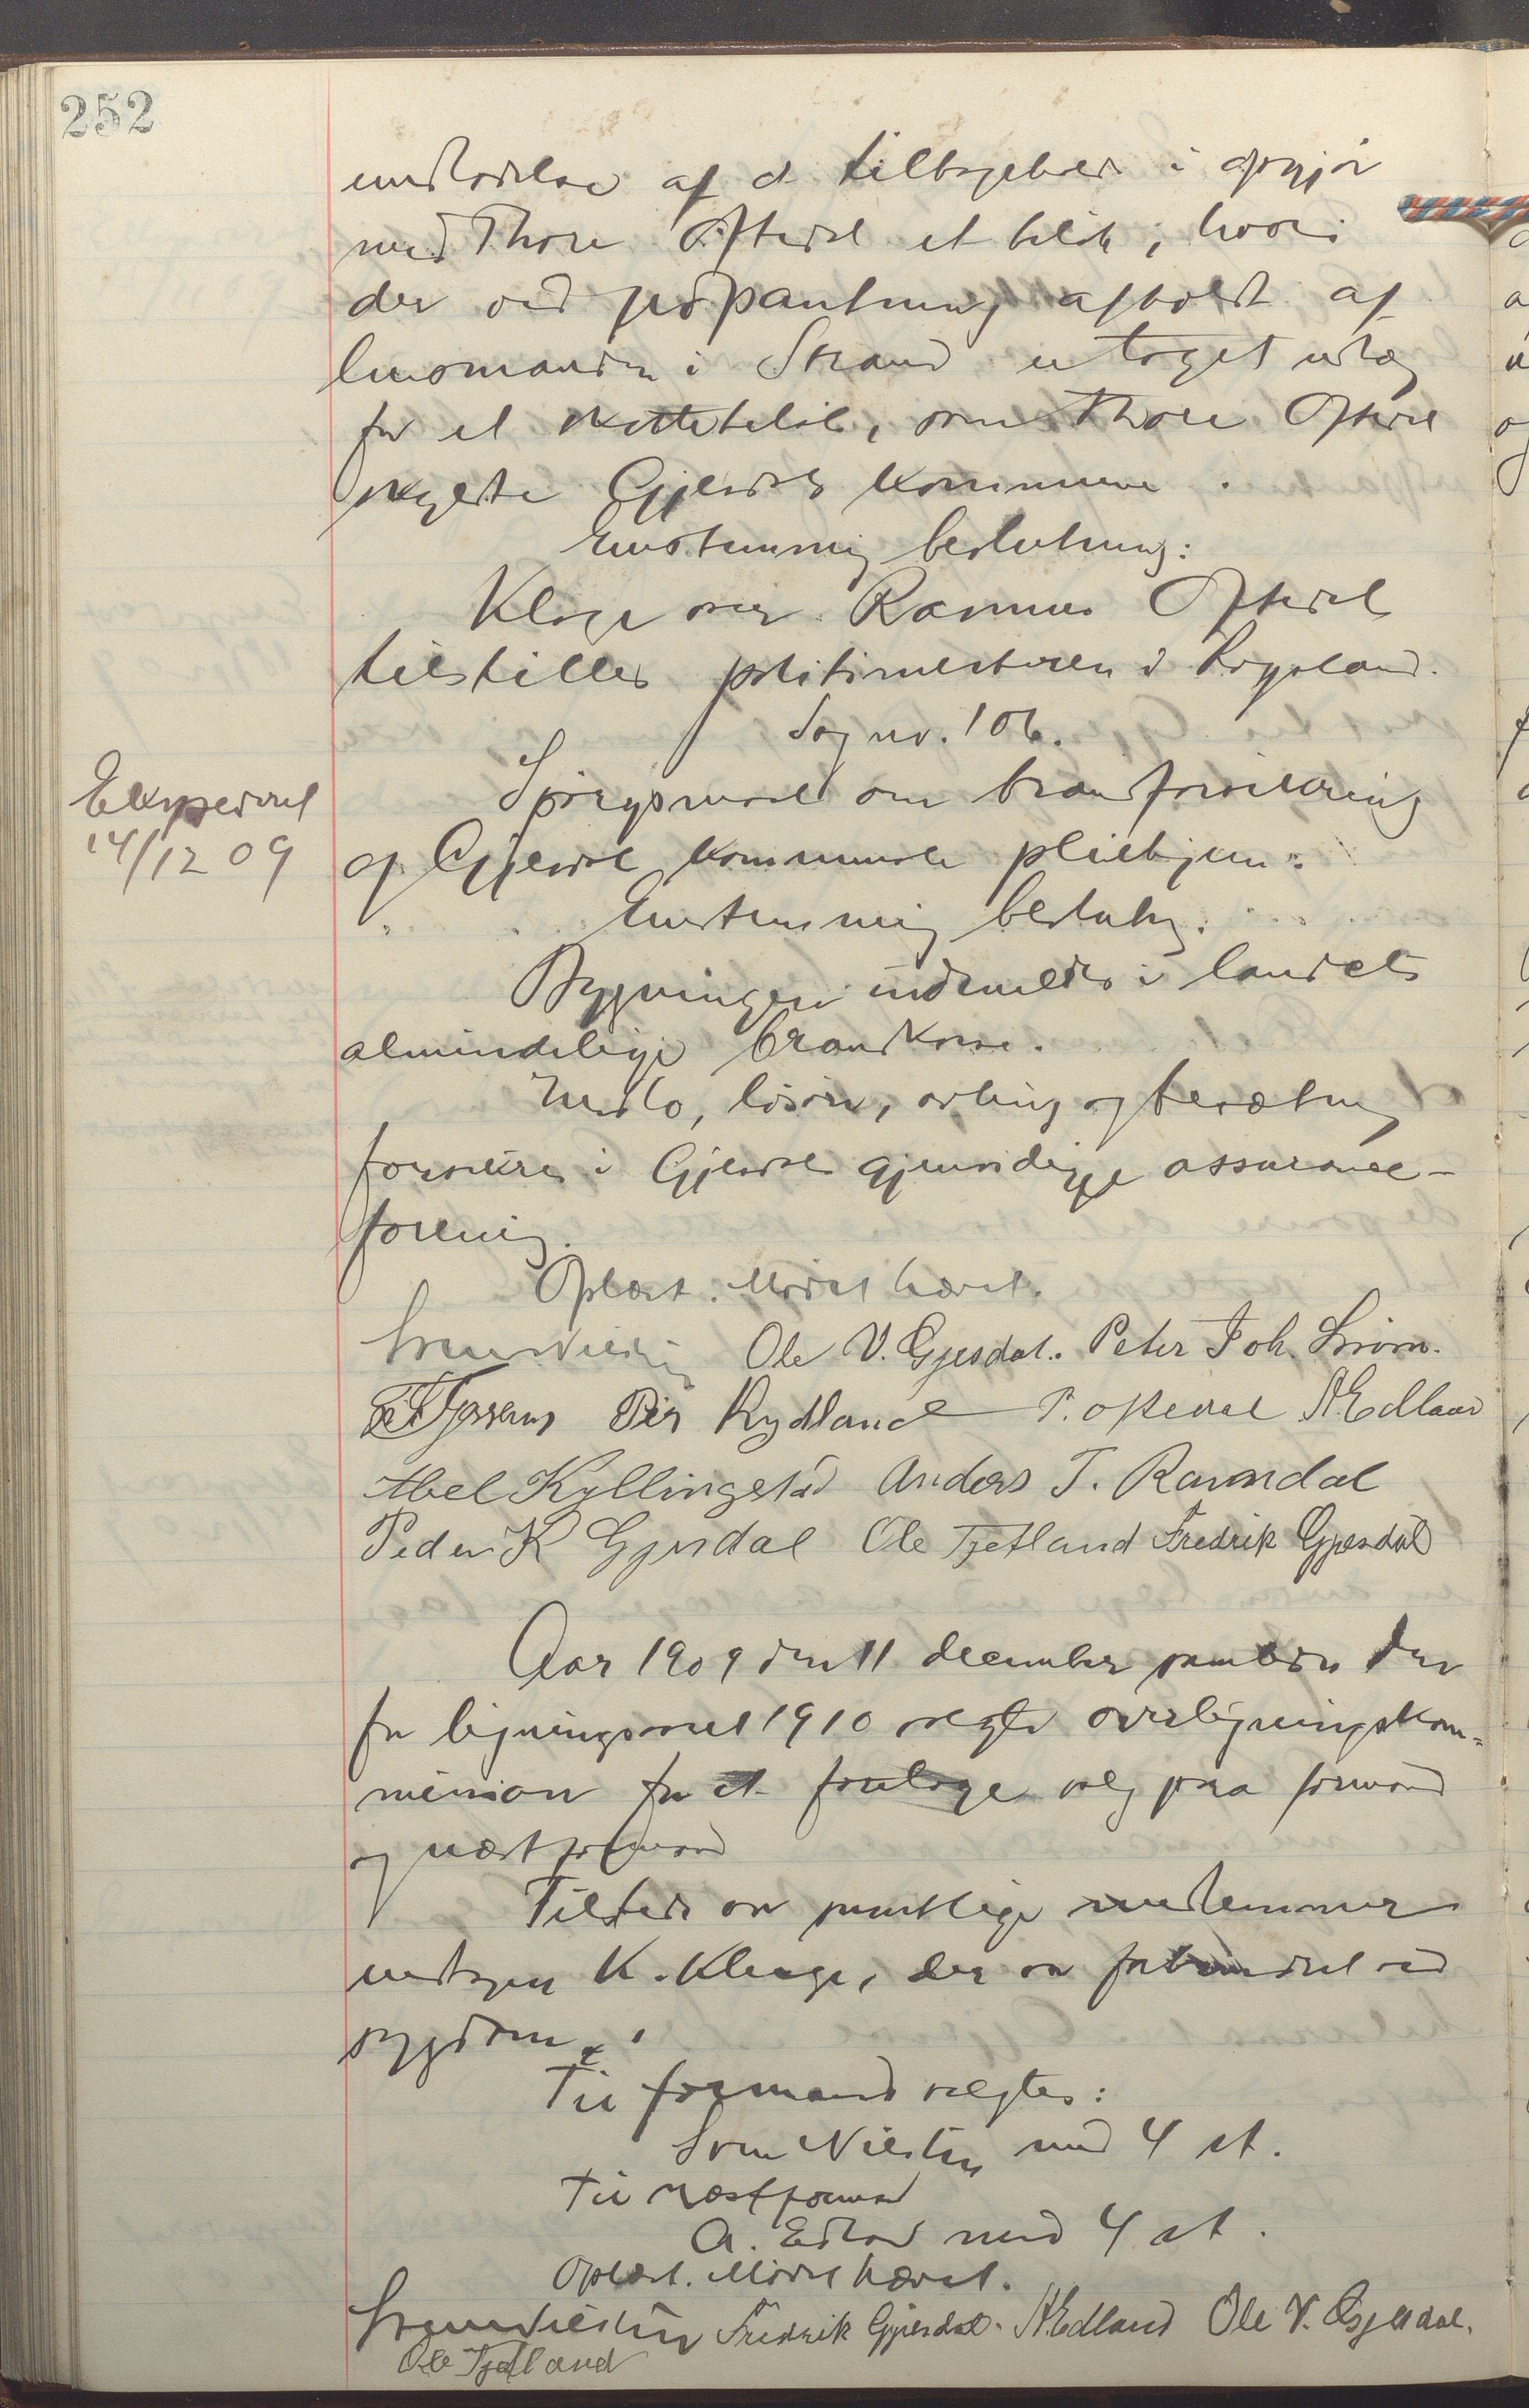 252
undladelse af at tilbagebetale i opgjør
med Thore Oftedal et beløb, hvori
der ved pudpantning afholdt af
lensmanden i Strand er taget udlæg
for et skattebeløb, som Thore Oftedal
skyldte Gjesdal kommune.
Enstemmig beslutning:
Klage over Rasmus Oftedal
tilstilles politimesteren i Rogaland.
Sag nr. 106.
Ekspederet
14/12 09
Spørgsmaal om brandforsikring
af Gjesdal kommunale pleiehjem.
Enstemmig beslutng:
Bygningen indmeldes i landets
almindelige brandkasse.
Indbo, løsøre, avling og besætning
forsikres i Gjesdal gjensidige assurance-
forening.
Oplæst. Mødet hævet.
Ole V. Gjesdal. Peter Joh. Limm.
Per Rydland P. Oftedal A. Edland
Abel Kyllingstad Anders T. Ravndal
Peder K Gjesdal Ole Tjetland Fredrik Gjesdal
Aar 1909 den 11 december samledes den
for ligningsaaret 1910 valgte overligningskom-
mission for at foretage valg paa formand
og næstformand
Tilstede var samtlige medlemmer
undtagen K. Kluge, der var forhindret ved
sygdom.
Til formand valgtes:
Sven Nilsen med 4 st.
Til næstformand
A. Edland med 4 st.
Oplæst. Mødet hævet.
Fredrik Gjesdal. A. Edland Ole V. Gjesdal.
Ole Tjetland